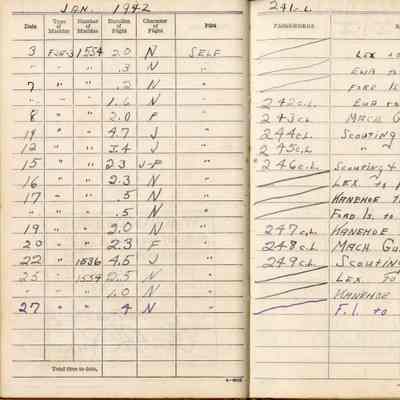 JAN. 1942
Date Type of Machine Number of Machine Duration of Flight Character of Flight Pilot
3 F2A-3 1554 2.0 N SELF
" " " .3 N "
7 " " .2 N "
" " " 1.6 N "
8 " " 2.0 F "
" " 4.7 J "
12 " " 3.4 J "
15 " " 2.3 J-P "
16 " " 2.3 N "
17 " " .5 N "
" " " .5 N "
19 " " 2.0 N "
20 " " 2.3 F "
22 " 1536 4.5 J "
25 " 1554 2.5 N "
" " " 1.0 N "
27 " " .4 N "
Total time to date,
241 C.L.
PASSENGERS
LEX
EWA
FORD IS.
242 C.L. EWA
243 C.L. MACH. GU
244 C.L. SCOUTING
245 C.L. " "
246 C.L. SCOUTING &
LEX TO
KANEHOE
FORD IS. TO
247 C.L. KANEHOE
248 C.L. MACH. GU
249 C.L. SCOUTING
LEX TO
KANEHOE
F.I. TO